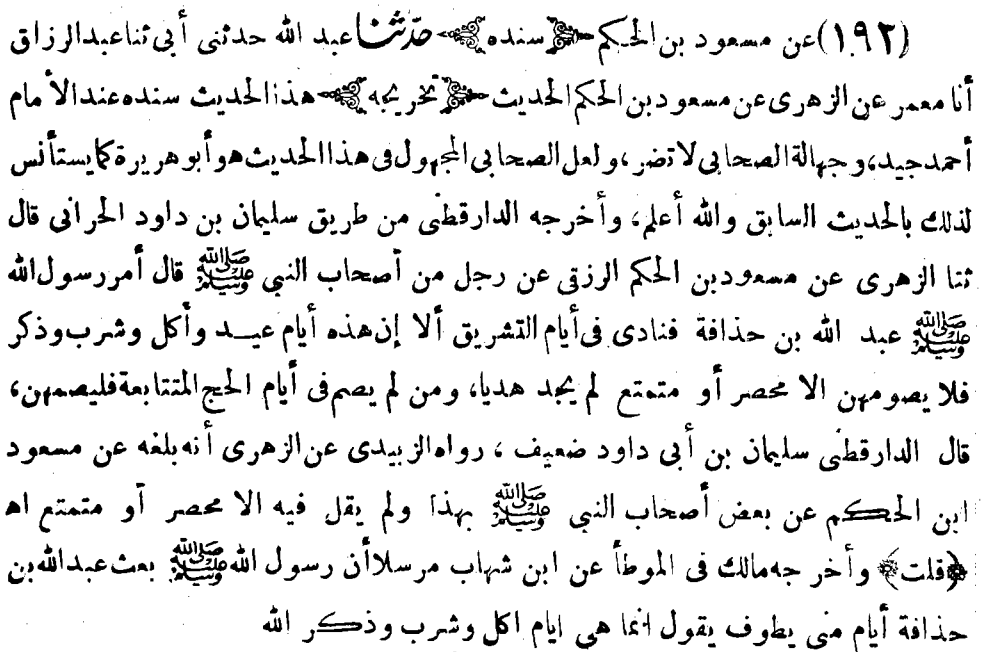 (١٩٢) عن مسعود بن الحكم ﴿سنده﴾ حدّثنا عبد الله حدثنى أبى ثنا عبد الرزاق
أنا معمر عن الزهرى عن مسعود بن الحكم الحديث ﴿تخريجه﴾ هذا الحديث سنده عند الأمام
أحمد جيد، وجهالة الصحابى لا تضر، ولعل الصحابى المجهول فى هذا الحديث هو أبو هريرة كما يستأنس
لذلك بالحديث السابق والله أعلم، وأخرجه الدارقطنى من طريق سليمان بن داود الحرانى قال
ثنا الزهرى عن مسعود بن الحكم الرزقى عن رجل من أصحاب النبى ﷺ قال أمر رسول الله
ﷺ عبد الله بن حذافة فنادى فى أيام التشريق ألا إن هذه أيام عيد وأكل وشرب وذكر
فلا يصومهن الا محصر أو متمتع لم يجد هديا، ومن لم يصم فى أيام الحج المتتابعة فليصمهن،
قال الدارقطنى سليمان بن أبى داود ضعيف، رواه الزبيدى عن الزهرى أنه بلغه عن مسعود
ابن الحكم عن بعض أصحاب النبى ﷺ بهذا ولم يقل فيه الا محصر أو متمتع اه
﴿قلت﴾ وأخرجه مالك فى الموطأ عن ابن شهاب مرسلا أن رسول الله ﷺ بعث عبد الله بن
حذافة أيام منى يطوف يقول انما هى ايام اكل وشرب وذكر الله